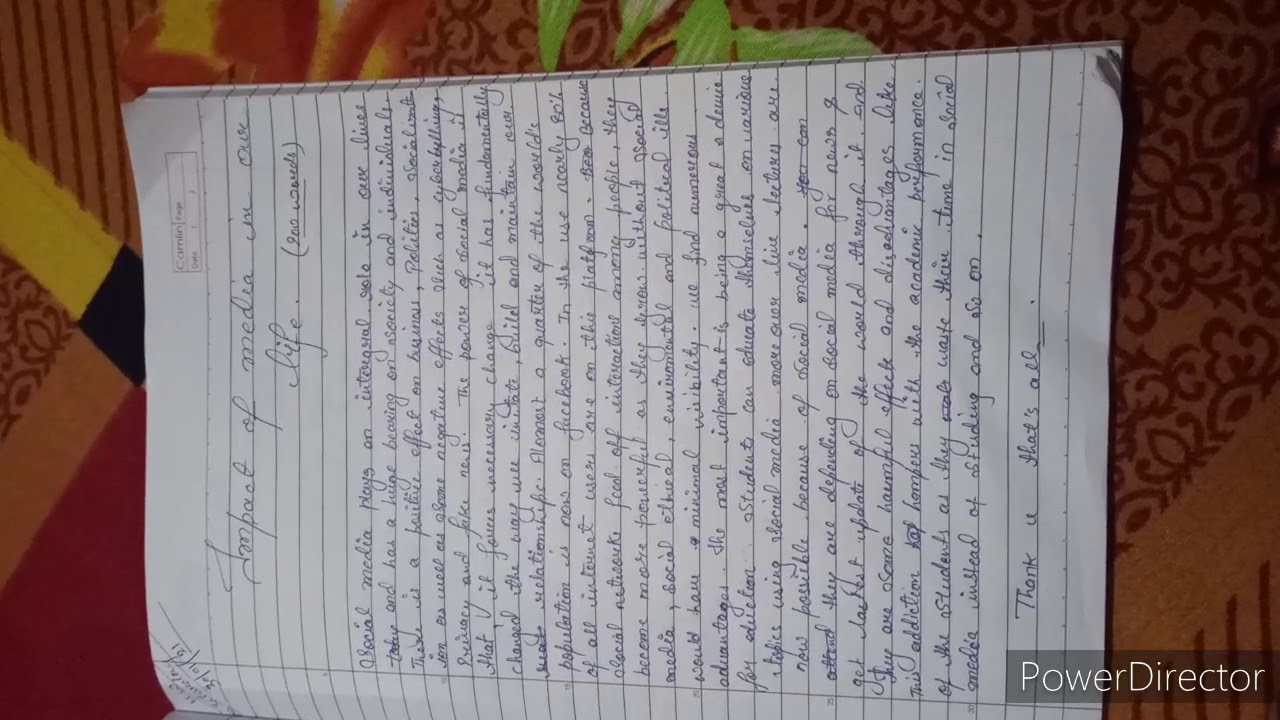 Camlin Page
Date
Impact of media in our
life. (200 words)
Social media plays an intergral role in our lives
and has a huge bearing on society and individuals.
There is a positive effect on business, Politics, socialmt
ion as well as some negative effects such as cyberbullying
Privacy and fake news. The power of social media is
that, it forces necessary change. It has fundamentally
changed the way we initate, build and maintain our
relationship. Alomast a quarter of the world's
population is now on facebook. In the use nearly 80%
of all internet users are on this platform. Because
social networks feed off interactions among people, they
become more powerful as they grow. without social
media, social ethical, envirmontal and political ills
would have minimal visibility. we find numerious
advantages. the most important is being a great a devie
for ediction. students can educate themselves on various
topics using social media more over live lecturs are
now possible because of social media.
they are depending on social media for news &
get lastest update of the world through it. and
they are some harmful effects and disadvantages like
This addiction hampers with the academic performance.
of the students as they waste their time in social
media instead of studing and so on.
Thank u that's all.
PowerDirector